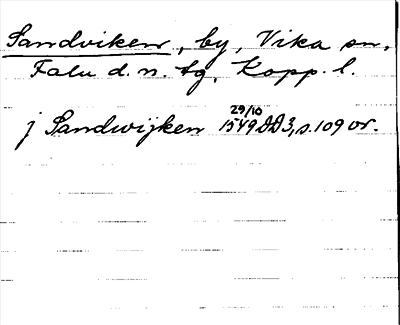 Sandviken, by, Vika sn,
Falu d. n. tg, Kopp. l.
j Sandwijken 29/10 1549 DD3, s. 109 or.